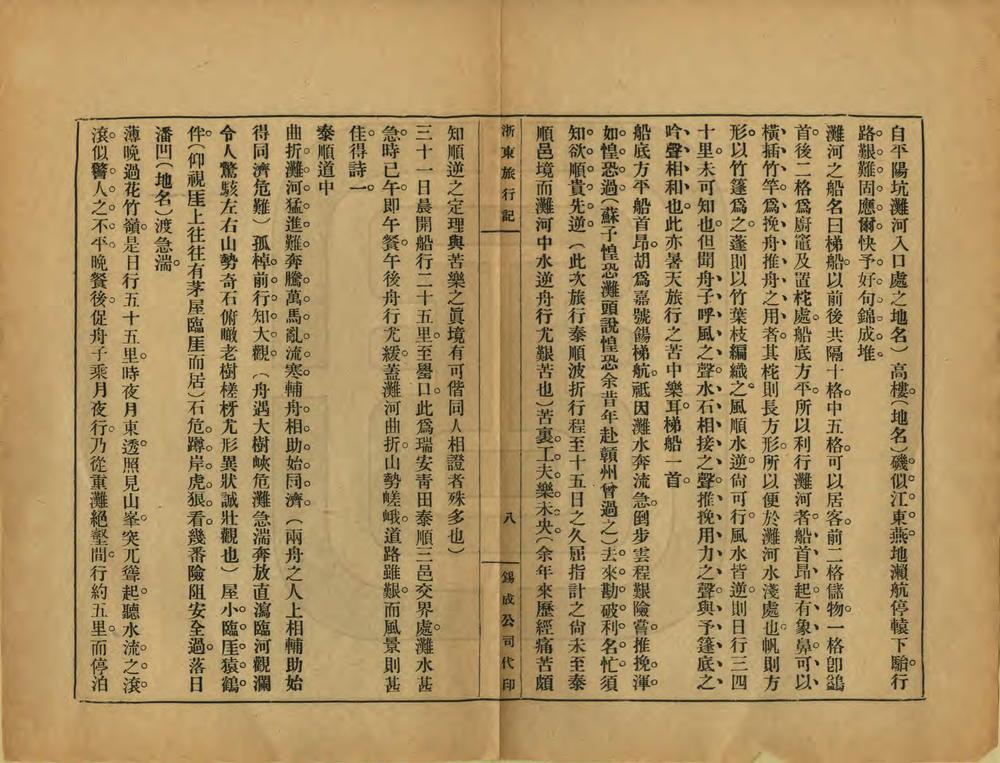 自平陽坑灘河入口處之地名）高樓（地名）磯似江東燕地瀨航停轅下駘行
路艱難固應爾快予好句錦成堆。
灘河之船名曰梯船以前後共隔十格中五格可以居客前二格儲物一格卽鷁
首後二格爲廚竈及置柁處船底方平所以利行灘河者船首昂起有象鼻可以
橫插竹竿爲挽舟推舟之用者其柁則長方形所以便於灘河水淺處也帆則方
形以竹篷爲之蓬則以竹葉枝編織之風順水逆尙可行風水皆逆則日行三四
十里未可知也但聞舟子呼風之聲水石相接之聲推挽用力之聲與予篷底之
吟聲相和也此亦暑天旅行之苦中樂耳梯船一首。
船底方平船首昂胡爲嘉號錫梯航祗因灘水奔流急倒步雲程艱險嘗推挽渾
如惶恐過（蘇子惶恐灘頭說惶恐余昔年赴贛州曾過之）去來勘破利名忙須
知欲順貴先逆（此次旅行泰順波折行程至十五日之久屈指計之尙未至泰
順邑境而灘河中水逆舟行尤艱苦也）苦裏工夫樂未央（余年來歷經痛苦頗
浙東旅行記
八
錫成公司代印
知順逆之定理與苦樂之眞境有可偕同人相證者殊多也）
三十一日晨開船行二十五里至罌口此爲瑞安靑田泰順三邑交界處灘水甚
急時已午卽午餐午後舟行尤緩蓋灘河曲折山勢嵯峨道路雖艱而風景則甚
佳得詩一。
泰順道中
曲折灘河猛進難奔騰萬馬亂流寒輔舟相助始同濟（兩舟之人上相輔助始
得同濟危難）孤棹前行知大觀（舟遇大樹峽危灘急湍奔放直瀉臨河觀瀾
令人驚駭左右山勢奇石俯瞰老樹槎枒尤形異狀誠壯觀也）屋小臨厓猿鶴
伴（仰視厓上往往有茅屋臨厓而居）石危蹲岸虎狼看幾番險阻安全過落日
潘凹（地名）渡急湍。
薄晚過花竹嶺是日行五十五里時夜月東透照見山峯突兀聳起聽水流之滾
滾似警人之不平晚餐後促舟子乘月夜行乃從重灘絕壑間行約五里而停泊